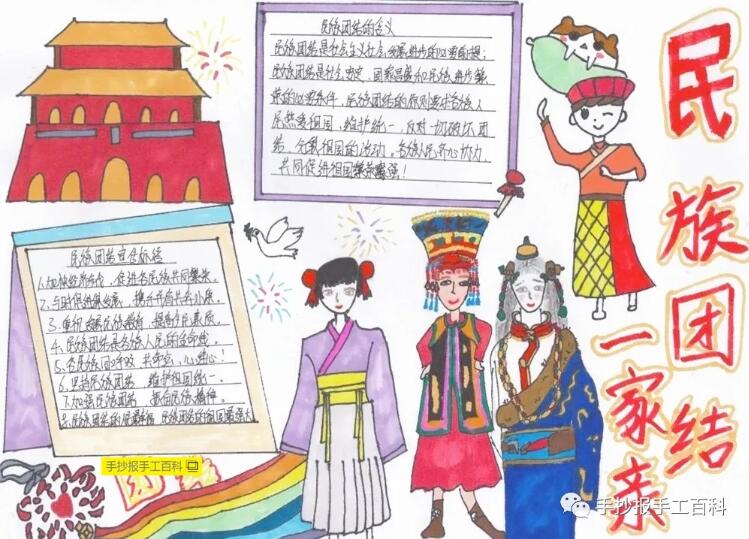 民族团结的含义
民族团结是社会主义社会
民族团结是社会安定、国家昌盛和民族进步繁
荣的必要条件，民族团结的原则要求各族人
民热爱祖国，维护统一，反对一切破坏团
结、分裂祖国的活动。各族人民齐心协力，
共同促进祖国繁荣富强！
民族团结宣传标语
1.加快经济步伐，促进各民族共同繁荣。
2.与时促进
3.
4.民族团结是各族人民的生命线。
5.各民族同呼吸 共命运、心连心！
6.坚持民族团结 维护祖国统一。
7.加强民族团结
8.民族团结
民族团结
一家亲
手抄报手工百科
手抄报手工百科